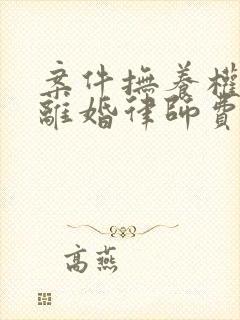 案件撫養權
離婚律師費
高燕